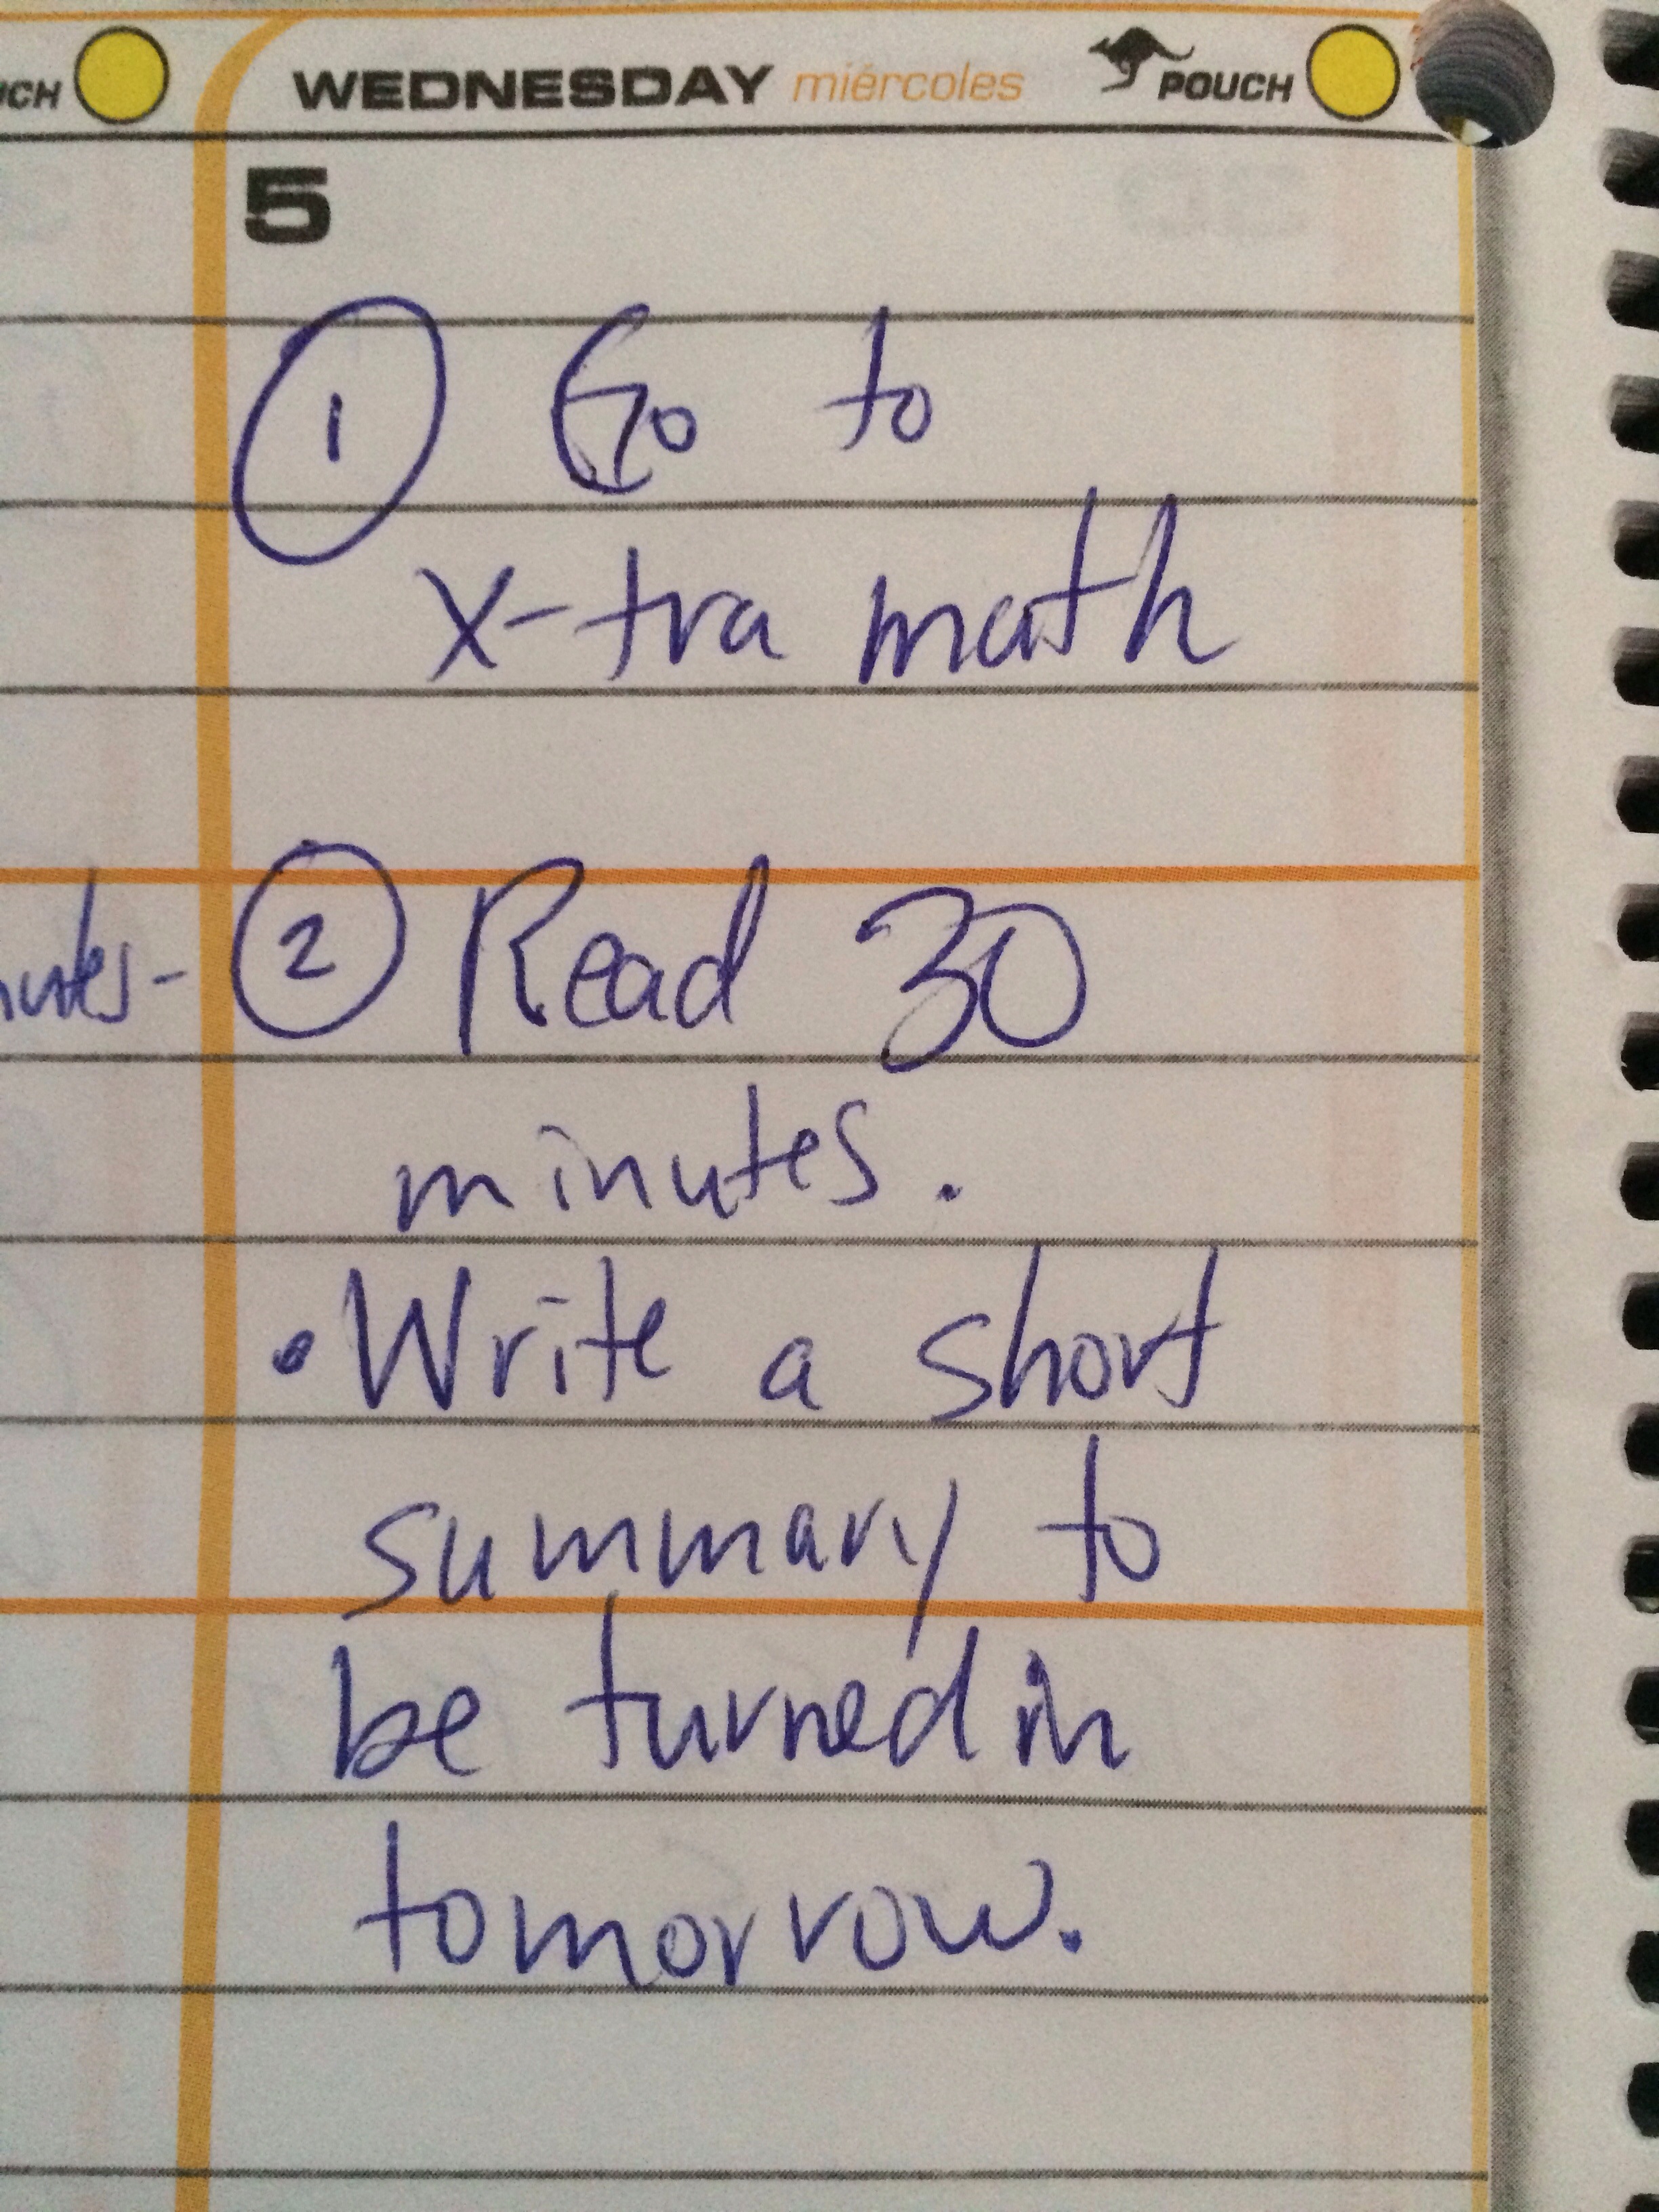 UCH
WEDNESDAY miércoles POUCH
5
1 Go to
x-tra math
nutes- 2 Read 30
minutes.
• Write a short
summary to
be turned in
tomorrow.